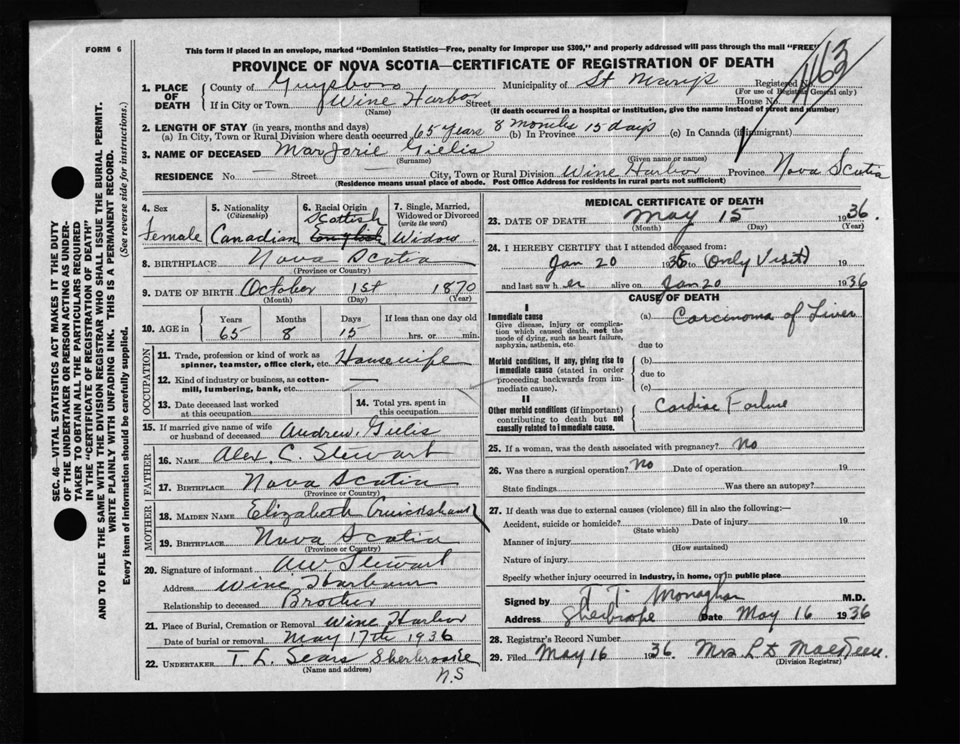 FORM 6
This form if placed in an envelope, marked "Dominion Statistics—Free, penalty for improper use $300," and properly addressed will pass through the mail "FREE"
PROVINCE OF NOVA SCOTIA—CERTIFICATE OF REGISTRATION OF DEATH
1163
SEC. 46—VITAL STATISTICS ACT MAKES IT THE DUTY
OF THE UNDERTAKER OR PERSON ACTING AS UNDER-
TAKER TO OBTAIN ALL THE PARTICULARS REQUIRED
IN THE "CERTIFICATE OF REGISTRATION OF DEATH"
AND TO FILE THE SAME WITH THE DIVISION REGISTRAR WHO SHALL ISSUE THE BURIAL PERMIT.
WRITE PLAINLY WITH UNFADING INK. THIS IS A PERMANENT RECORD.
Every item of information should be carefully supplied. (See reverse side for instructions.)
1. PLACE OF DEATH County of Guysboro Municipality of St Marys Registered No.
(For use of Registrar General only)
If in City or Town Wine Harbor Street House No.
(Name) (If death occurred in a hospital or institution, give the name instead of street and number)
2. LENGTH OF STAY (in years, months and days)
(a) In City, Town or Rural Division where death occurred 65 years 8 months 15 days (b) In Province (c) In Canada (if immigrant)
3. NAME OF DECEASED Marjorie Gillis
(Surname) (Given name or names)
RESIDENCE No. — Street — City, Town or Rural Division Wine Harbor Province Nova Scotia
(Residence means usual place of abode. Post Office Address for residents in rural parts not sufficient)
4. Sex 5. Nationality (Citizenship) 6. Racial Origin 7. Single, Married, Widowed or Divorced (write the word)
Female Canadian Scottish English Widow
8. BIRTHPLACE Nova Scotia
(Province or Country)
9. DATE OF BIRTH October 1st 1870
(Month) (Day) (Year)
10. AGE in Years Months Days If less than one day old
65 8 15 hrs. or min.
OCCUPATION
11. Trade, profession or kind of work as spinner, teamster, office clerk, etc. Housewife
12. Kind of industry or business, as cotton-mill, lumbering, bank, etc. —
13. Date deceased last worked at this occupation 14. Total yrs. spent in this occupation
15. If married give name of wife or husband of deceased Andrew Gillis
FATHER
16. NAME Alex. C. Stewart
17. BIRTHPLACE Nova Scotia
(Province or Country)
MOTHER
18. MAIDEN NAME Elizabeth Cruickshank
19. BIRTHPLACE Nova Scotia
(Province or Country)
20. Signature of informant AW Stewart
Address Wine Harbour
Relationship to deceased Brother
21. Place of Burial, Cremation or Removal Wine Harbor
Date of burial or removal May 17th 1936
22. UNDERTAKER T. L. Sears Sherbrooke
(Name and address) N.S
MEDICAL CERTIFICATE OF DEATH
23. DATE OF DEATH May 15 1936.
(Month) (Day) (Year)
24. I HEREBY CERTIFY that I attended deceased from:
Jan 20 1936 to (Only Visit) 19
and last saw her alive on Jan 20 1936
CAUSE OF DEATH
I
Immediate cause (a) Carcinoma of Liver
Give disease, injury or complication which caused death, not the mode of dying, such as heart failure, asphyxia, asthenia, etc. due to
Morbid conditions, if any, giving rise to immediate cause (stated in order proceeding backwards from immediate cause). (b)
due to
(c)
II
Other morbid conditions (if important) contributing to death but not causally related to immediate cause. Cardiac Failure
25. If a woman, was the death associated with pregnancy? No
26. Was there a surgical operation? No Date of operation 19
State findings Was there an autopsy?
27. If death was due to external causes (violence) fill in also the following:—
Accident, suicide or homicide? Date of injury 19
(State which)
Manner of injury
(How sustained)
Nature of injury
Specify whether injury occurred in industry, in home, or in public place
Signed by T. T. Monaghan M.D.
Address Sherbrooke Date May 16 1936
28. Registrar's Record Number
29. Filed May 16 1936 Mrs L D
(Division Registrar)